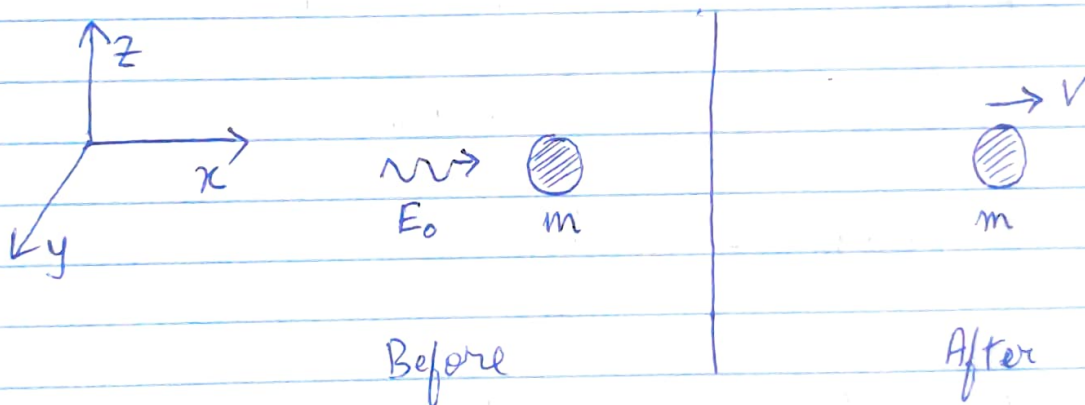 z
x
y
E₀
m
Before
V
m
After